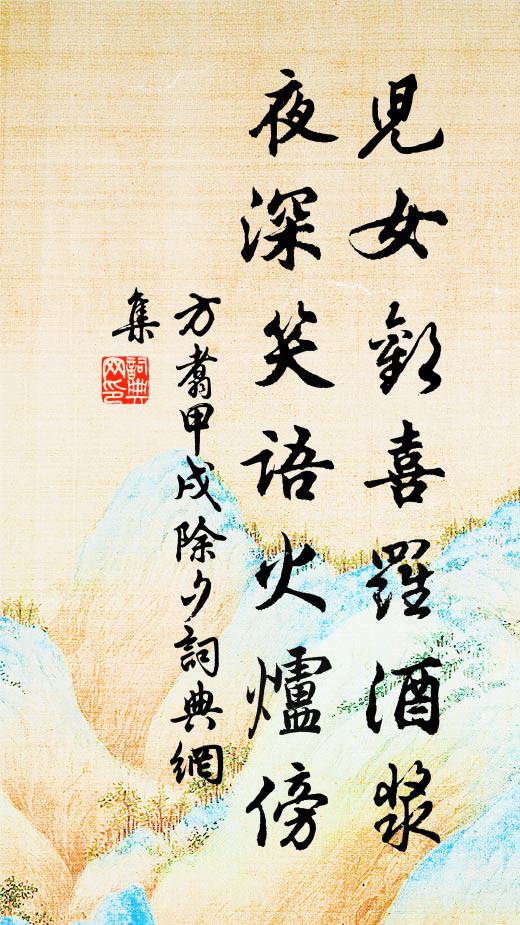 兒女歡喜羅酒漿
夜深笑語火爐傍
方翥甲戌除夕詞典網
集
詞典網印